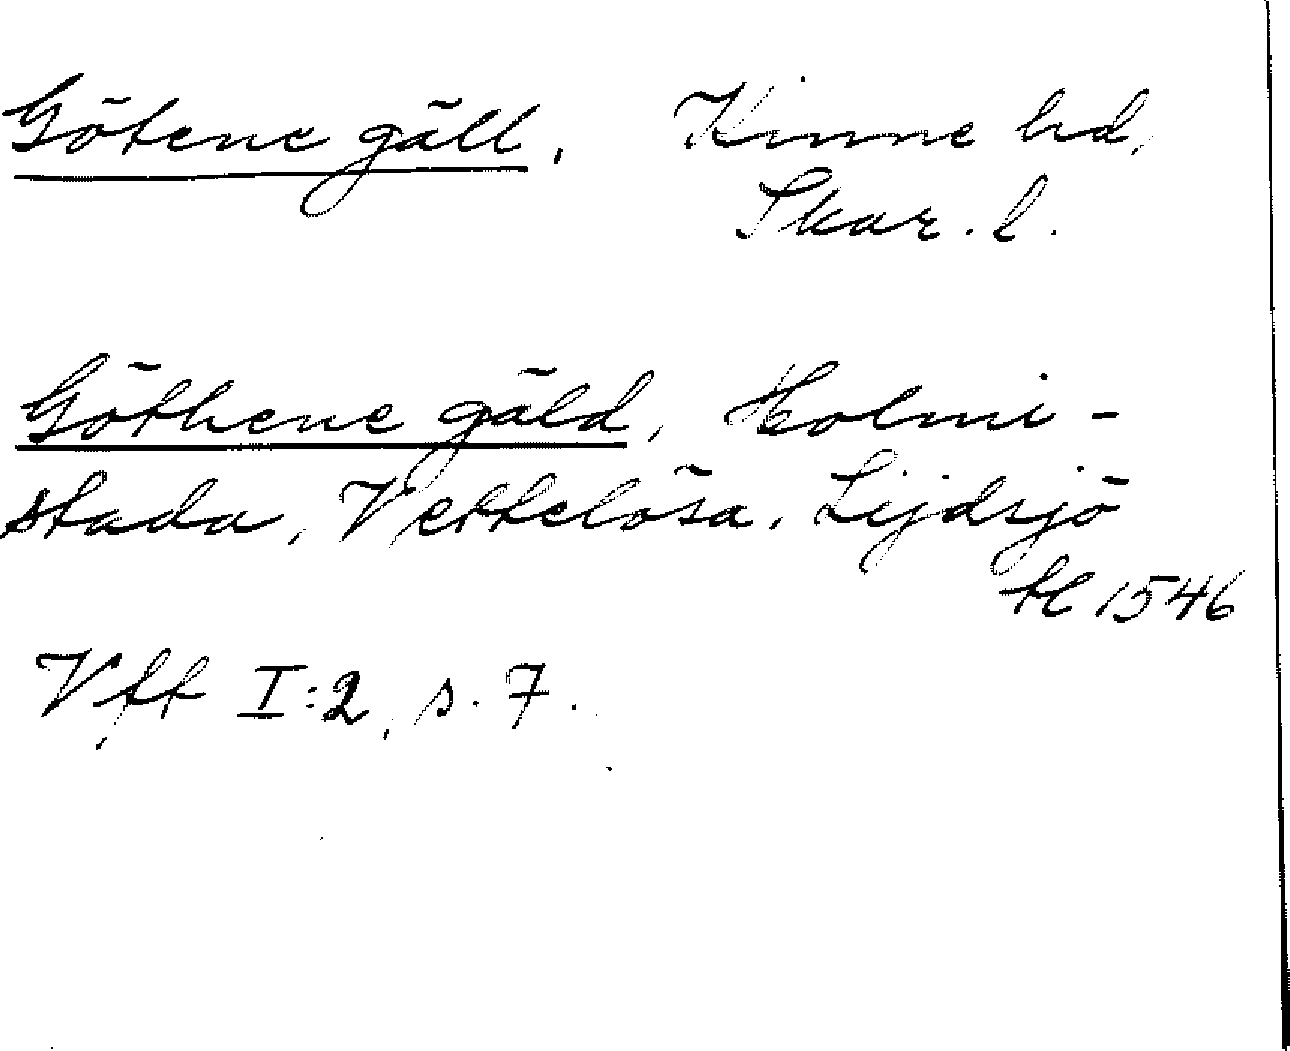 Götene gäll, Kinne hd,
Skar. l.
Göthene gäld, Holmi-
stada, Vettelösa, Lijdsjö
tl 1546
Vft I:2, s. 7.